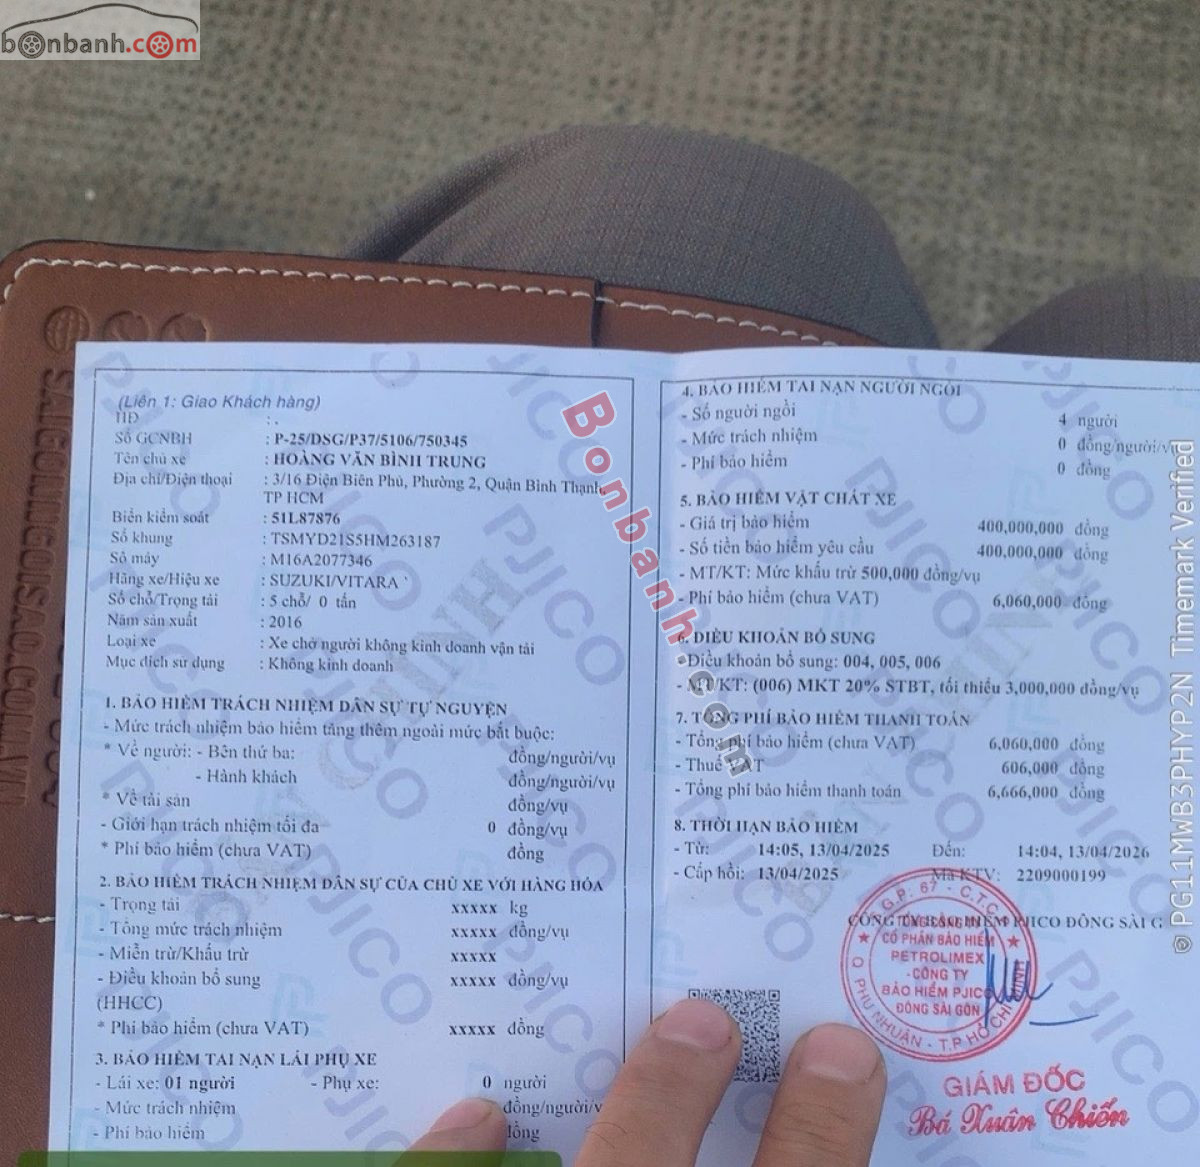 bonbanh.com
(Liên 1: Giao Khách hàng)
HĐ : .
Số GCNBH : P-25/DSG/P37/5106/750345
Tên chủ xe : HOÀNG VĂN BÌNH TRUNG
Địa chỉ/Điện thoại : 3/16 Điện Biên Phủ, Phường 2, Quận Bình Thạnh,
TP HCM
Biển kiểm soát : 51L87876
Số khung : TSMYD21S5HM263187
Số máy : M16A2077346
Hãng xe/Hiệu xe : SUZUKI/VITARA
Số chỗ/Trọng tải : 5 chỗ/ 0 tấn
Năm sản xuất : 2016
Loại xe : Xe chở người không kinh doanh vận tải
Mục đích sử dụng : Không kinh doanh
1. BẢO HIỂM TRÁCH NHIỆM DÂN SỰ TỰ NGUYỆN
- Mức trách nhiệm bảo hiểm tăng thêm ngoài mức bắt buộc:
* Về người: - Bên thứ ba: đồng/người/vụ
- Hành khách đồng/người/vụ
* Về tài sản đồng/vụ
- Giới hạn trách nhiệm tối đa 0 đồng/vụ
* Phí bảo hiểm (chưa VAT) đồng
2. BẢO HIỂM TRÁCH NHIỆM DÂN SỰ CỦA CHỦ XE VỚI HÀNG HÓA
- Trọng tải xxxxx kg
- Tổng mức trách nhiệm xxxxx đồng/vụ
- Miễn trừ/Khấu trừ xxxxx
- Điều khoản bổ sung xxxxx đồng/vụ
(HHCC)
* Phí bảo hiểm (chưa VAT) xxxxx đồng
3. BẢO HIỂM TAI NẠN LÁI PHỤ XE
- Lái xe: 01 người - Phụ xe: 0 người
- Mức trách nhiệm đồng/người/v
- Phí bảo hiểm đồng
4. BẢO HIỂM TAI NẠN NGƯỜI NGỒI
- Số người ngồi 4 người
- Mức trách nhiệm 0 đồng/người/vụ
- Phí bảo hiểm 0 đồng
5. BẢO HIỂM VẬT CHẤT XE
- Giá trị bảo hiểm 400,000,000 đồng
- Số tiền bảo hiểm yêu cầu 400,000,000 đồng
- MT/KT: Mức khấu trừ 500,000 đồng/vụ
- Phí bảo hiểm (chưa VAT) 6,060,000 đồng
6. ĐIỀU KHOẢN BỔ SUNG
- Điều khoản bổ sung: 004, 005, 006
- MT/KT: (006) MKT 20% STBT, tối thiểu 3,000,000 đồng/vụ
7. TỔNG PHÍ BẢO HIỂM THANH TOÁN
- Tổng phí bảo hiểm (chưa VAT) 6,060,000 đồng
- Thuế VAT 606,000 đồng
- Tổng phí bảo hiểm thanh toán 6,666,000 đồng
8. THỜI HẠN BẢO HIỂM
- Từ: 14:05, 13/04/2025 Đến: 14:04, 13/04/2026
- Cấp hồi: 13/04/2025 Mã KTV: 2209000199
CÔNG TY BẢO HIỂM PJICO ĐÔNG SÀI G
G.P: 67 - C.T.C.P
TỔNG CÔNG TY
CỔ PHẦN BẢO HIỂM
PETROLIMEX
-CÔNG TY
BẢO HIỂM PJICO
ĐÔNG SÀI GÒN
Q PHÚ NHUẬN - T.P HỒ CHÍ MINH
GIÁM ĐỐC
Bá Xuân Chiến
Bonbanh.com
PG11MWB3PHYP2N Timemark Verified
SAIGONNGOISAO.COM.VN
PJICO